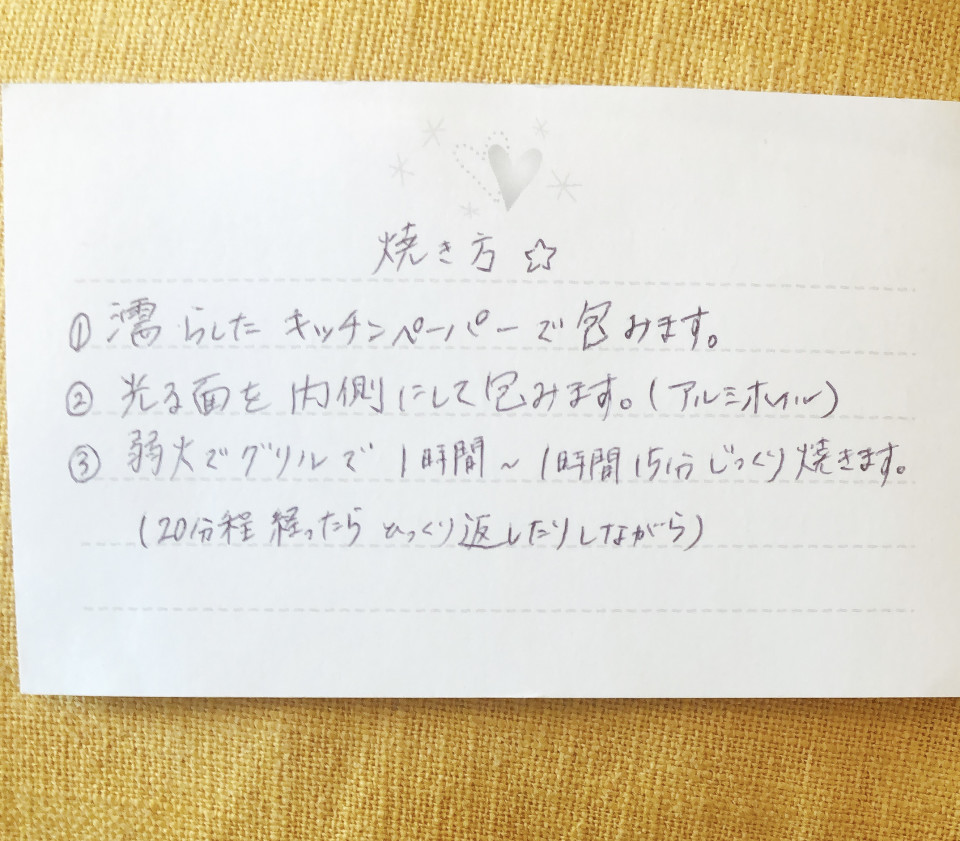 焼き方☆
① 濡らしたキッチンペーパーで包みます。
② 光る面を内側にして包みます。(アルミホイル)
③ 弱火でグリルで1時間~1時間15分じっくり焼きます。
(20分程経ったらひっくり返したりしながら)